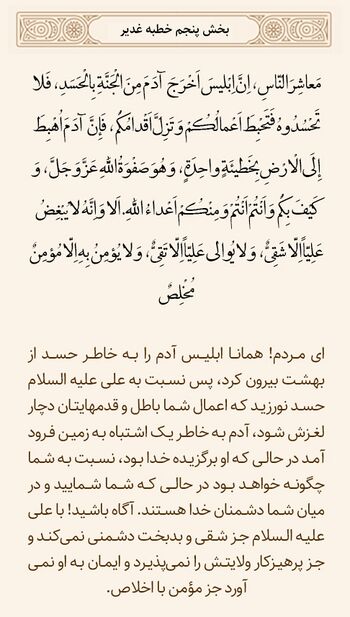 بخش پنجم خطبه غدیر
مَعاشِرَ النّاسِ، اِنَّ اِبْليسَ اَخْرَجَ آدَمَ مِنَ الْجَنَّةِ بِالْحَسَدِ، فَلا
تَحْسُدُوهُ فَتَحْبِطَ اَعْمالُكُمْ وَ تَزِلَّ اَقْدامُكُمْ، فَاِنَّ آدَمَ اُهْبِطَ
اِلَى الْاَرْضِ بِخَطيئَةٍ واحِدَةٍ، وَ هُوَ صَفْوَةُ اللهِ عَزَّ وَ جَلَّ، وَ
كَيْفَ بِكُمْ وَ اَنْتُمْ اَنْتُمْ وَ مِنْكُمْ اَعْداءُ اللهِ. اَلا وَ اِنَّهُ لا يُبْغِضُ
عَلِيّاً اِلّا شَقِيٌّ، وَ لا يُوالى عَلِيّاً اِلّا تَقِيٌّ، وَ لا يُؤْمِنُ بِهِ اِلّا مُؤْمِنٌ
مُخْلِصٌ
ای مردم! همانا ابلیس آدم را به خاطر حسد از
بهشت بیرون کرد، پس نسبت به علی علیه السلام
حسد نورزید که اعمال شما باطل و قدمهایتان دچار
لغزش شود، آدم به خاطر یک اشتباه به زمین فرود
آمد در حالی که او برگزیده خدا بود، نسبت به شما
چگونه خواهد بود در حالی که شما شمایید و در
میان شما دشمنان خدا هستند. آگاه باشید! با علی
علیه السلام جز شقی و بدبخت دشمنی نمی‌کند و
جز پرهیزکار ولایتش را نمی‌پذیرد و ایمان به او نمی
آورد جز مؤمن با اخلاص.